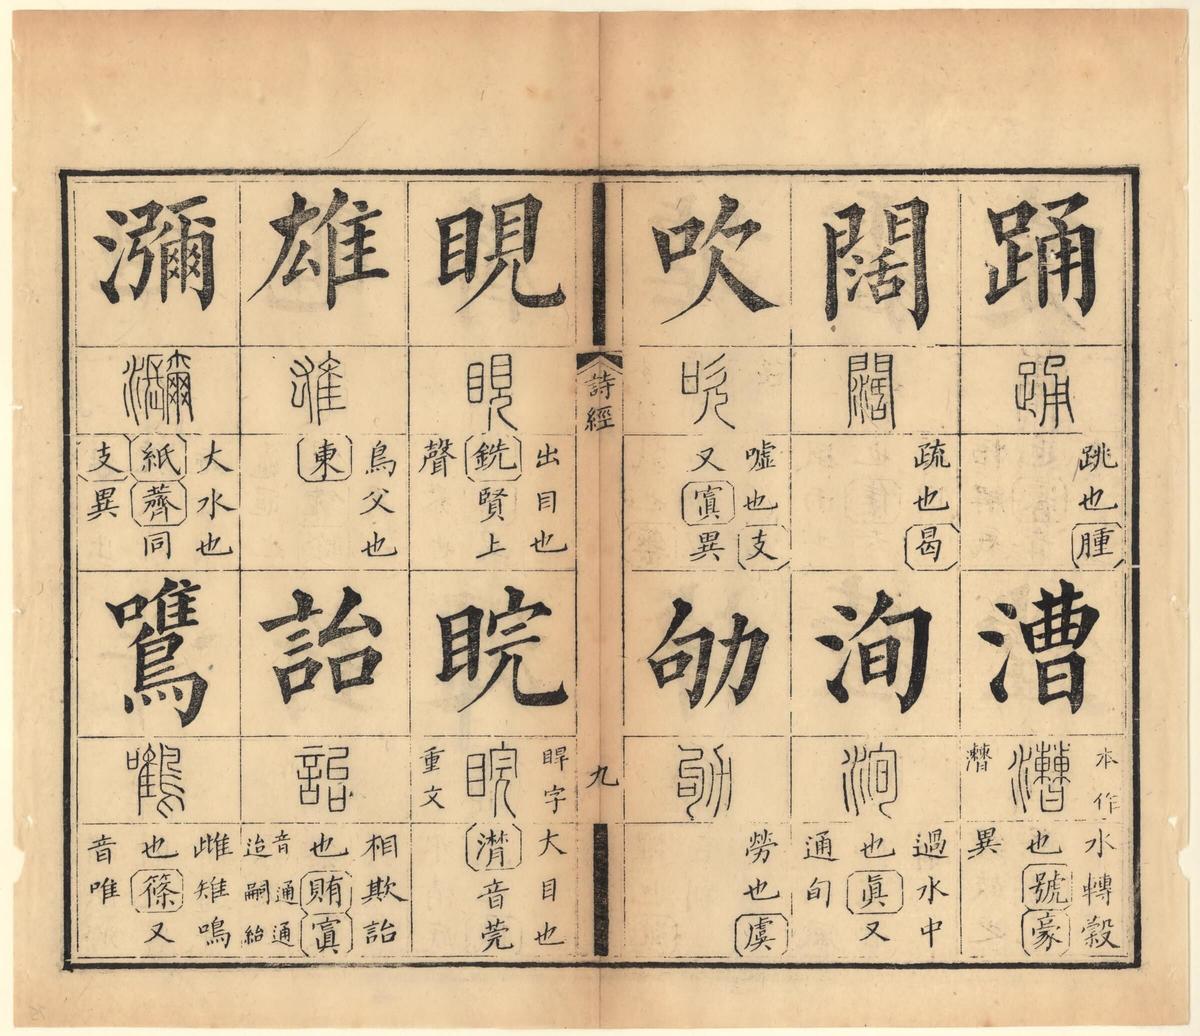 踊
踊
跳也腫
漕
本作
漕
水轉穀
也號豪
異
闊
闊
疏也曷
洵
洵
過水中
也眞又
通旬
吹
吹
噓也支
又寘異
劬
劬
勞也虞
詩經
九
睍
睍
出目也
銑賢上
聲
睆
睅字
睆
重文
大目也
潸音莞
雄
雄
鳥父也
東
詒
詒
相欺詒
也賄寘
音通通
迨嗣紿
瀰
瀰
大水也
紙薺同
支異
鷕
鷕
雌雉鳴
也篠又
音唯